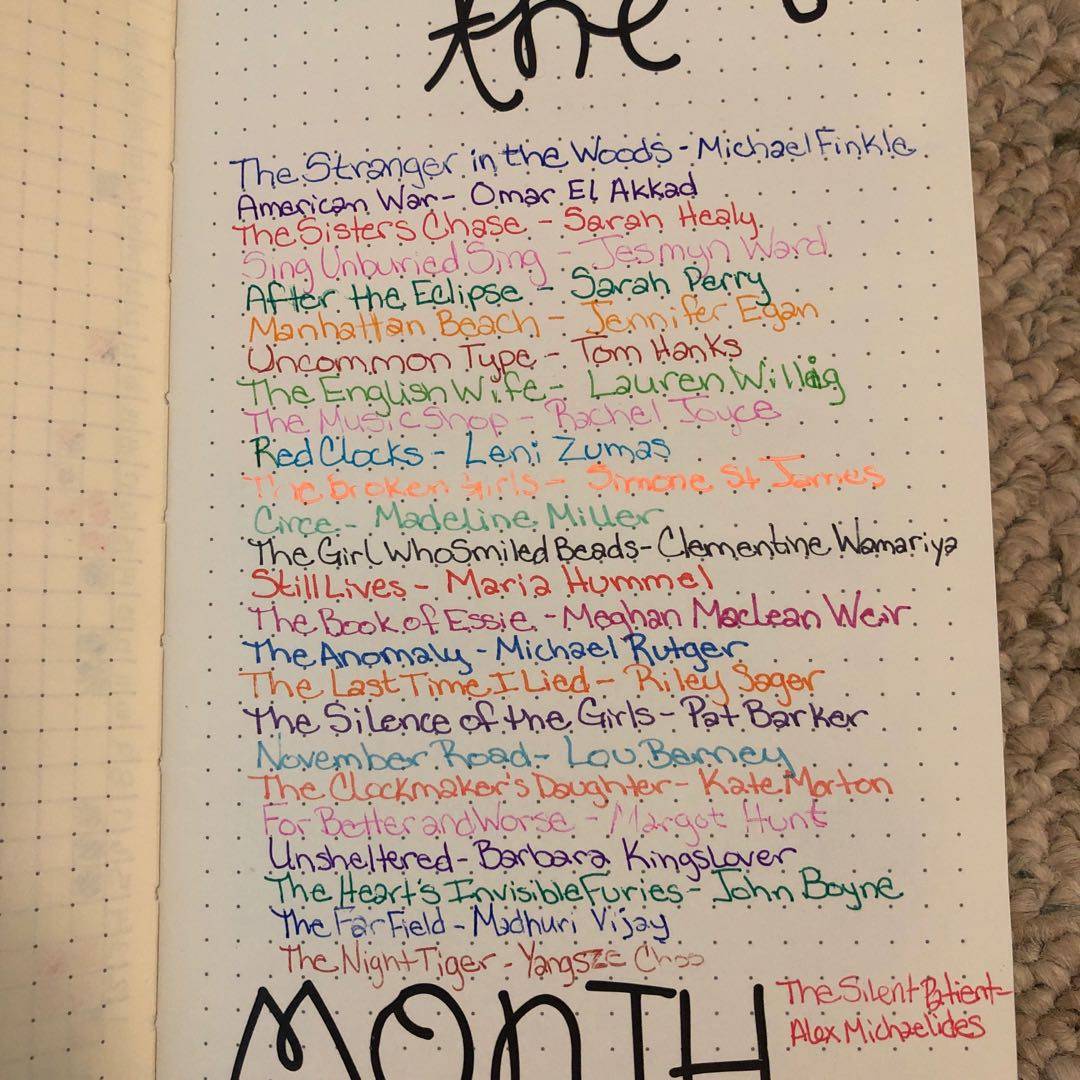 the
The Stranger in the Woods - Michael Finkle
American War - Omar El Akkad
The Sisters Chase - Sarah Healy
Sing Unburied Sing - Jesmyn Ward
After the Eclipse - Sarah Perry
Manhattan Beach - Jennifer Egan
Uncommon Type - Tom Hanks
The English Wife - Lauren Willig
The Music Shop - Rachel Joyce
Red Clocks - Leni Zumas
The Broken Girls - Simone St James
Circe - Madeline Miller
The Girl Who Smiled Beads - Clementine Wamariya
Still Lives - Maria Hummel
The Book of Essie - Meghan Maclean Weir
The Anomaly - Michael Rutger
The Last Time I Lied - Riley Sager
The Silence of the Girls - Pat Barker
November Road - Lou Berney
The Clockmaker's Daughter - Kate Morton
For Better and Worse - Margot Hunt
Unsheltered - Barbara Kingslover
The Heart's Invisible Furies - John Boyne
The Far Field - Madhuri Vijay
The Night Tiger - Yangsze Choo
MONTH
The Silent Patient -
Alex Michaelides